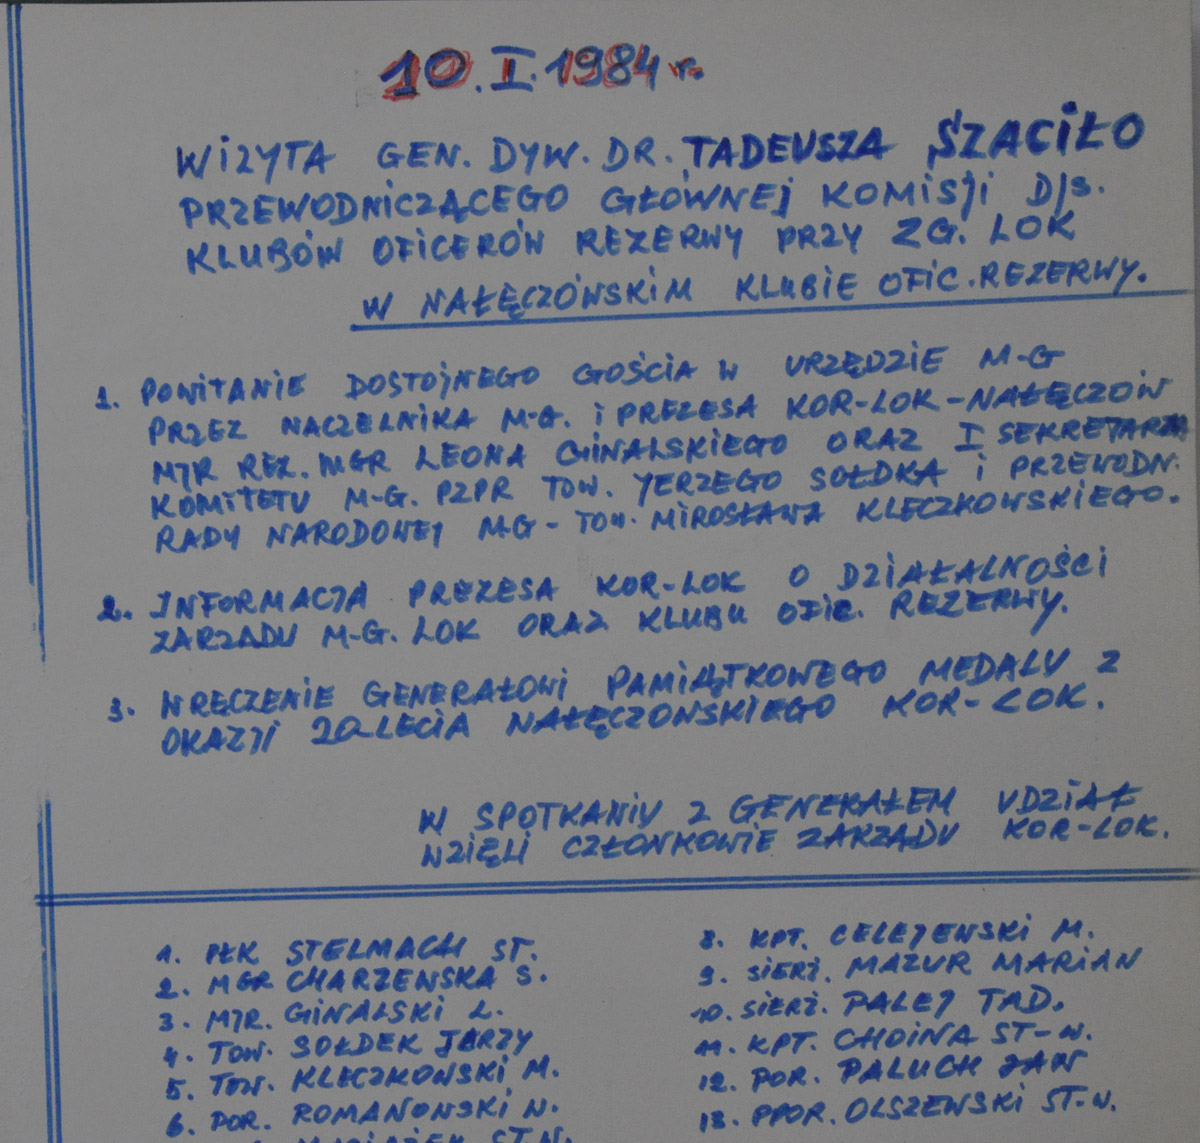 10.I.1984 r.
WIZYTA GEN. DYW. DR. TADEUSZA SZACIŁO
PRZEWODNICZĄCEGO GŁÓWNEJ KOMISJI D/S.
KLUBÓW OFICERÓW REZERWY PRZY ZG. LOK
W NAŁĘCZÓWSKIM KLUBIE OFIC. REZERWY.
1. POWITANIE DOSTOJNEGO GOŚCIA W URZĘDZIE M-G
PRZEZ NACZELNIKA M-G. i PREZESA KOR-LOK-NAŁĘCZÓW
MJR REZ. MGR LEONA GINALSKIEGO ORAZ I SEKRETARZA
KOMITETU M-G. PZPR TOW. JERZEGO SOŁDKA i PRZEWODN.
RADY NARODOWEJ M-G - TOW. MIROSŁAWA KLECZKOWSKIEGO.
2. INFORMACJA PREZESA KOR-LOK O DZIAŁALNOŚCI
ZARZĄDU M-G. LOK ORAZ KLUBU OFIC. REZERWY.
3. WRĘCZENIE GENERAŁOWI PAMIĄTKOWEGO MEDALU Z
OKAZJI 20-LECIA NAŁĘCZOWSKIEGO KOR-LOK.
W SPOTKANIU Z GENERAŁEM UDZIAŁ
WZIĘLI CZŁONKOWIE ZARZĄDU KOR-LOK.
1. PŁK STELMACH ST.
2. MGR CHARZEWSKA S.
3. MJR. GINALSKI L.
4. TOW. SOŁDEK JERZY
5. TOW. KLECZKOWSKI M.
6. POR. ROMANOWSKI W.
ST.W.
8. KPT. CELEJEWSKI M.
9. SIERŻ. MAZUR MARIAN
10. SIERŻ. PALEJ TAD.
11. KPT. CHOINA ST-W.
12. POR. PALUCH JAN
13. PPOR. OLSZEWSKI ST-W.